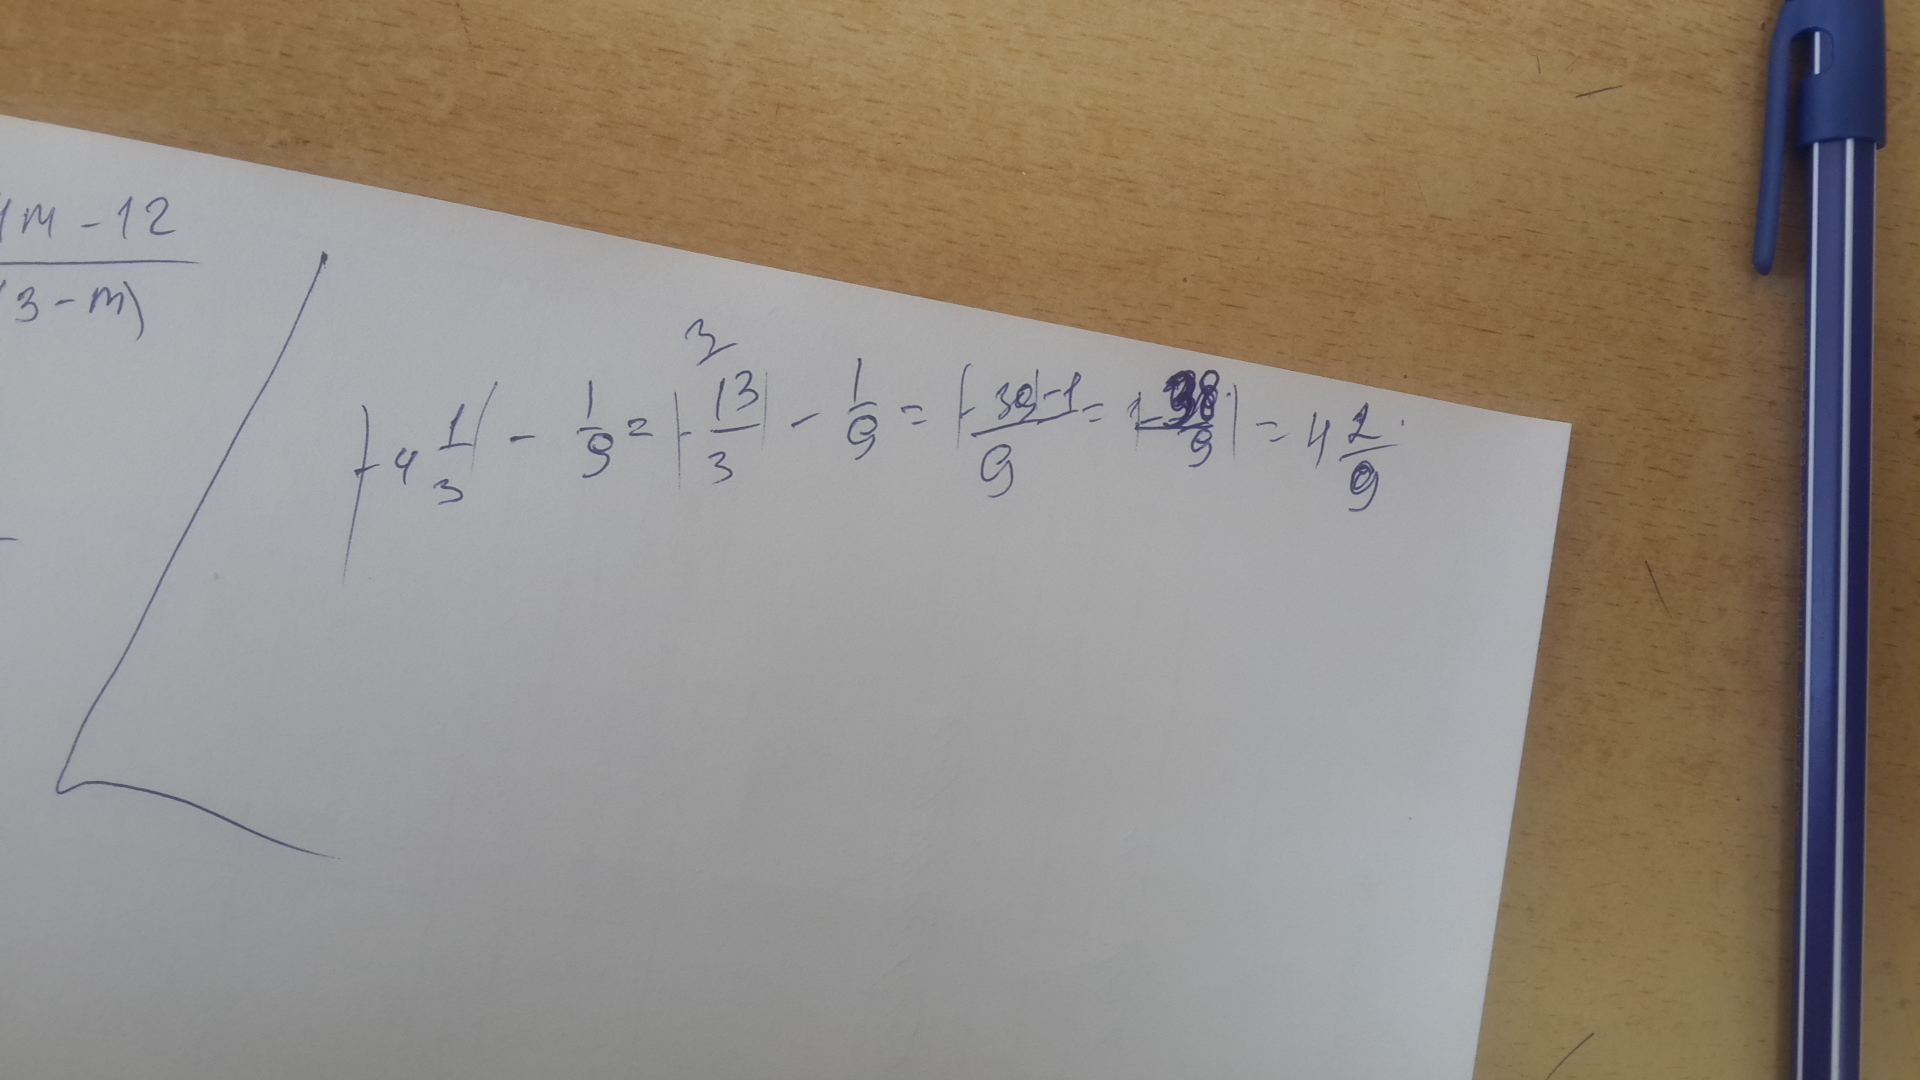 4m - 12
(3 - m)
3
|-4 1/3| - 1/9 = |-13/3| - 1/9 = |-39|-1/9 = |-38/9| = 4 2/9